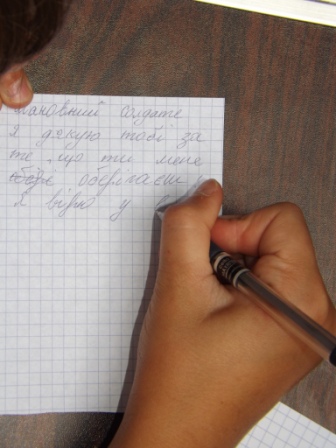 Шановний солдате
Я дякую тобі за
те, що ти мене
оберігаєш
Я вірю у